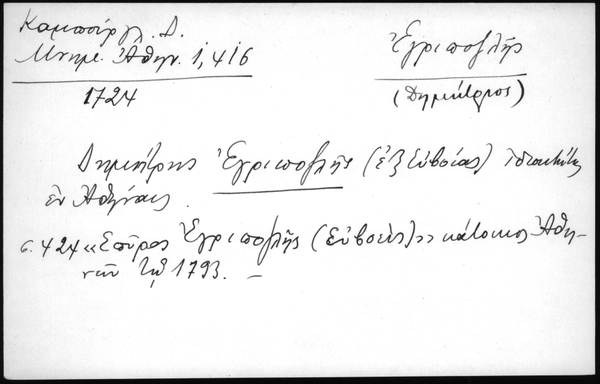 Καμπούρογλ. Δ.
Μνημ. Ἀθην. 1, 416
1724
Ἐγριποβλῆς
(Δημήτριος)
Δημήτρης Ἐγριποβλῆς (ἐξ Εὐβοίας) ἰδιοκτήτης
ἐν Ἀθήναις.
σ. 424 «Σπῦρος Ἐγριποβλῆς (Εὐβοεὺς)» κάτοικος Ἀθη-
νῶν τῷ 1793. –